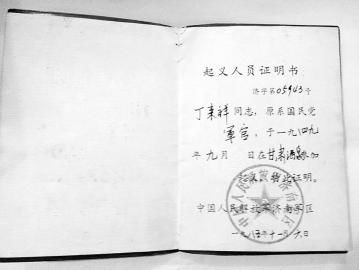 起义人员证明书
济字第05943号
丁来祥同志，原系国民党
军官，于一九四九
年九月 日在甘肃酒泉参加
起义，特此证明。
中国人民解放军济南军区
一九八 年十一月 日